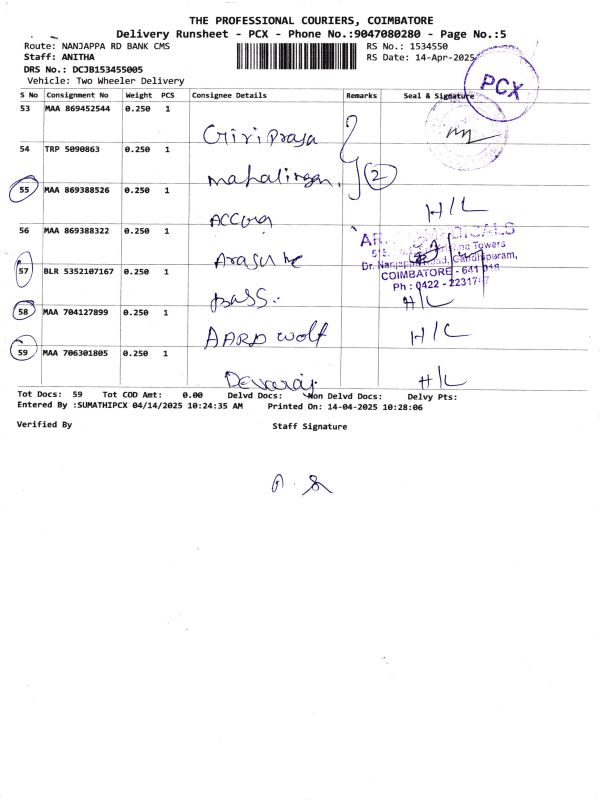 THE PROFESSIONAL COURIERS, COIMBATORE
Delivery Runsheet - PCX - Phone No.:9047080280 - Page No.:5
Route: NANJAPPA RD BANK CMS
RS No.: 1534550
Staff: ANITHA
RS Date: 14-Apr-2025
DRS No.: DCJB153455005
Vehicle: Two Wheeler Delivery
PCX
S No Consignment No Weight PCS Consignee Details Remarks Seal & Signature
53 MAA 869452544 0.250 1
Giriprasa
54 TRP 5090863 0.250 1
mahalingam. 2
55 MAA 869388526 0.250 1
H/L
56 MAA 869388322 0.250 1
Towers
Dr. Nanjappa Road, Gandhipuram,
COIMBATORE - 641 018
Ph : 0422 -
57 BLR 5352107167 0.250 1
pass. H/L
58 MAA 704127899 0.250 1
AARD wolf H/L
59 MAA 706301805 0.250 1
Devaraj H/L
Tot Docs: 59 Tot COD Amt: 0.00 Delvd Docs: Non Delvd Docs: Delvy Pts:
Entered By :SUMATHIPCX 04/14/2025 10:24:35 AM Printed On: 14-04-2025 10:28:06
Verified By Staff Signature